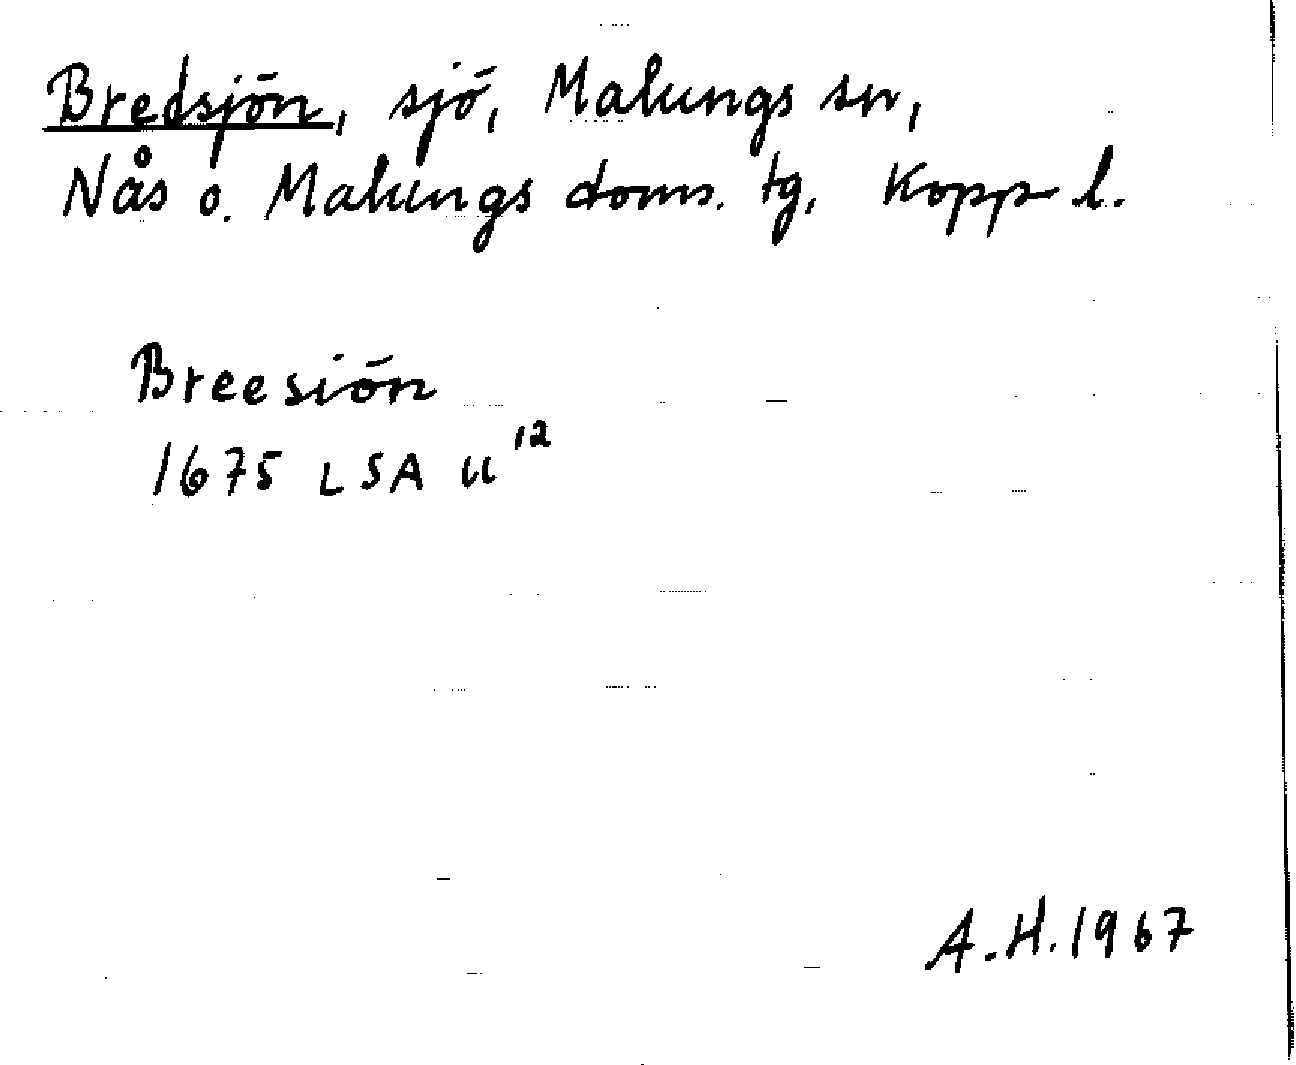 Bredsjön, sjö, Malungs sn,
Nås o. Malungs doms. tg, Kopp l.
Breesiön
1675 LSA U12
A.H. 1967